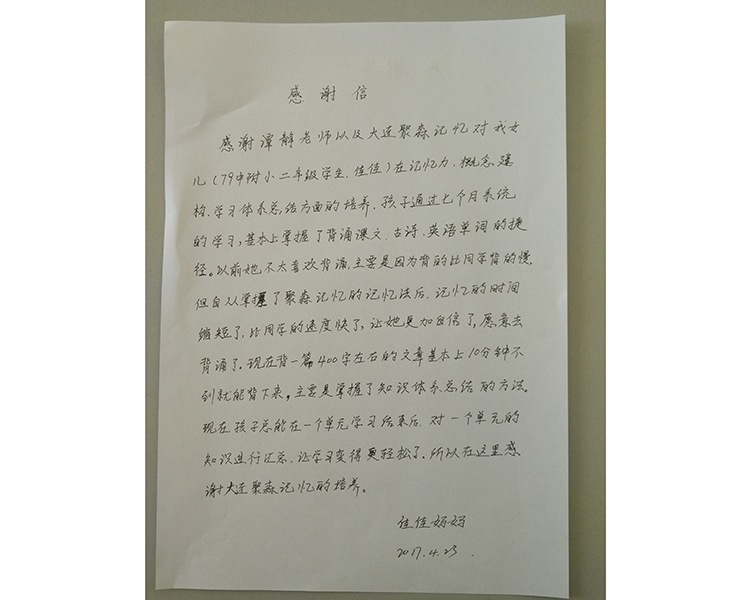 感谢信
感谢谭静老师以及大连聚森记忆对我女
儿（79中附小二年级学生、佳佳）在记忆力、概念建
构、学习体系总结方面的培养、孩子通过七个月系统
的学习，基本上掌握了背诵课文、古诗、英语单词的捷
径。以前她不太喜欢背诵、主要是因为背的比同学背的慢、
但自从掌握了聚森记忆的记忆法后、记忆的时间
缩短了、比同学的速度快了、让她更加自信了，愿意去
背诵了、现在背一篇400字左右的文章基本上10分钟不
到就能背下来。主要是掌握了知识体系总结的方法。
现在孩子总能在一个单元学习结束后、对一个单元的
知识进行汇总、让学习变得更轻松了、所以在这里感
谢大连聚森记忆的培养。
佳佳妈妈
2017.4.23.